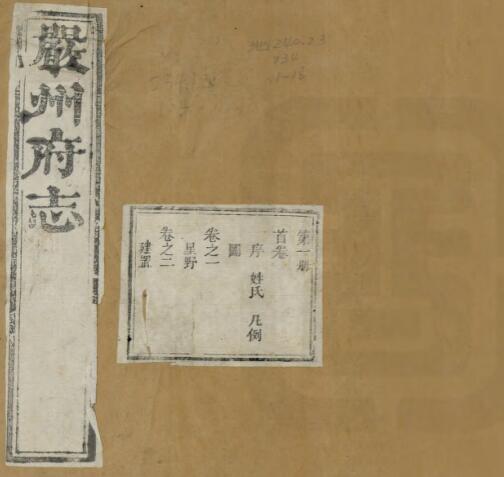 嚴州府志
第一册
首卷
序 姓氏 凡例
圖
卷之一
星野
卷之二
建置